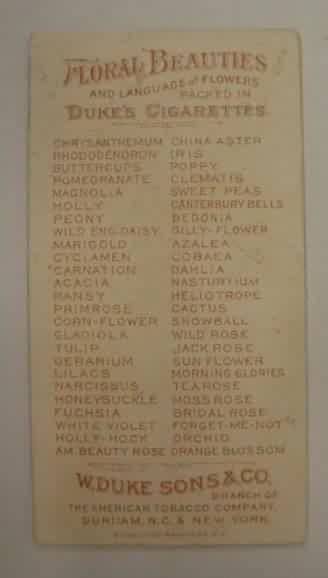 FLORAL BEAUTIES
AND LANGUAGE OF FLOWERS
PACKED IN
DUKE'S CIGARETTES
CHRYSANTHEMUM CHINA ASTER
RHODODENDRON IRIS
BUTTERCUPS POPPY
POMEGRANATE CLEMATIS
MAGNOLIA SWEET PEAS
HOLLY CANTERBURY BELLS
PEONY BEGONIA
WILD ENG. DAISY GILLY-FLOWER
MARIGOLD AZALEA
CYCLAMEN COBAEA
CARNATION DAHLIA
ACACIA NASTURTIUM
PANSY HELIOTROPE
PRIMROSE CACTUS
CORN-FLOWER SNOWBALL
GLADIOLA WILD ROSE
TULIP JACK ROSE
GERANIUM SUN FLOWER
LILACS MORNING GLORIES
NARCISSUS TEA ROSE
HONEYSUCKLE MOSS ROSE
FUCHSIA BRIDAL ROSE
WHITE VIOLET FORGET-ME-NOT
HOLLY-HOCK ORCHID
AM. BEAUTY ROSE ORANGE BLOSSOM
W. DUKE SONS & CO.
BRANCH OF
THE AMERICAN TOBACCO COMPANY,
DURHAM, N.C. & NEW YORK